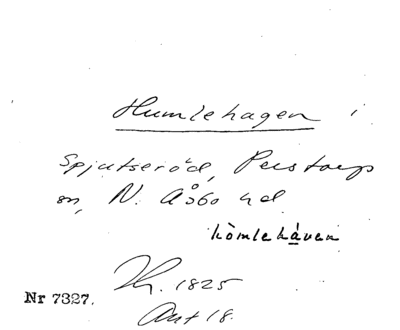 Humlehagen i
Spjutseröd, Perstorps
sn, N. Åsbo hd
hòmleháven
Nr 7327.
1825
Akt 18.